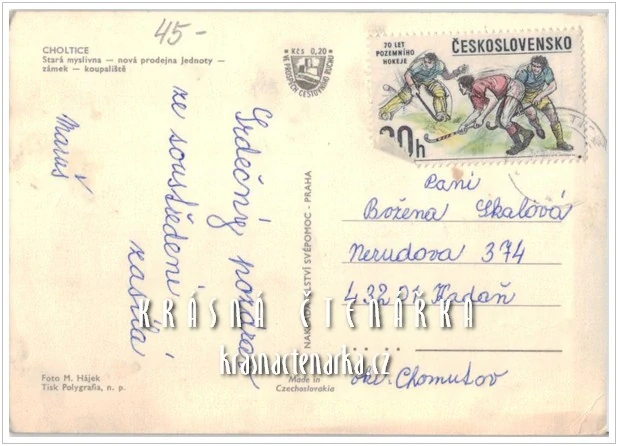 45-
CHOLTICE
Stará myslivna — nová prodejna Jednoty —
zámek — koupaliště
Kčs 0,20
VE PROSPĚCH CESTOVNÍHO RUCHU
70 LET
POZEMNÍHO
HOKEJE
ČESKOSLOVENSKO
30h
Srdečný pozdrav
ze soustředění
zasílá
Maruš
NAKLADATELSTVÍ SVÉPOMOC - PRAHA
Paní
Božena Skalová
Nerudova 374
432 01 Kadaň
okr. Chomutov
KRÁSNÁ ČTENÁŘKA
krasnactenarka.cz
Foto M. Hájek
Tisk Polygrafia, n. p.
Made in
Czechoslovakia